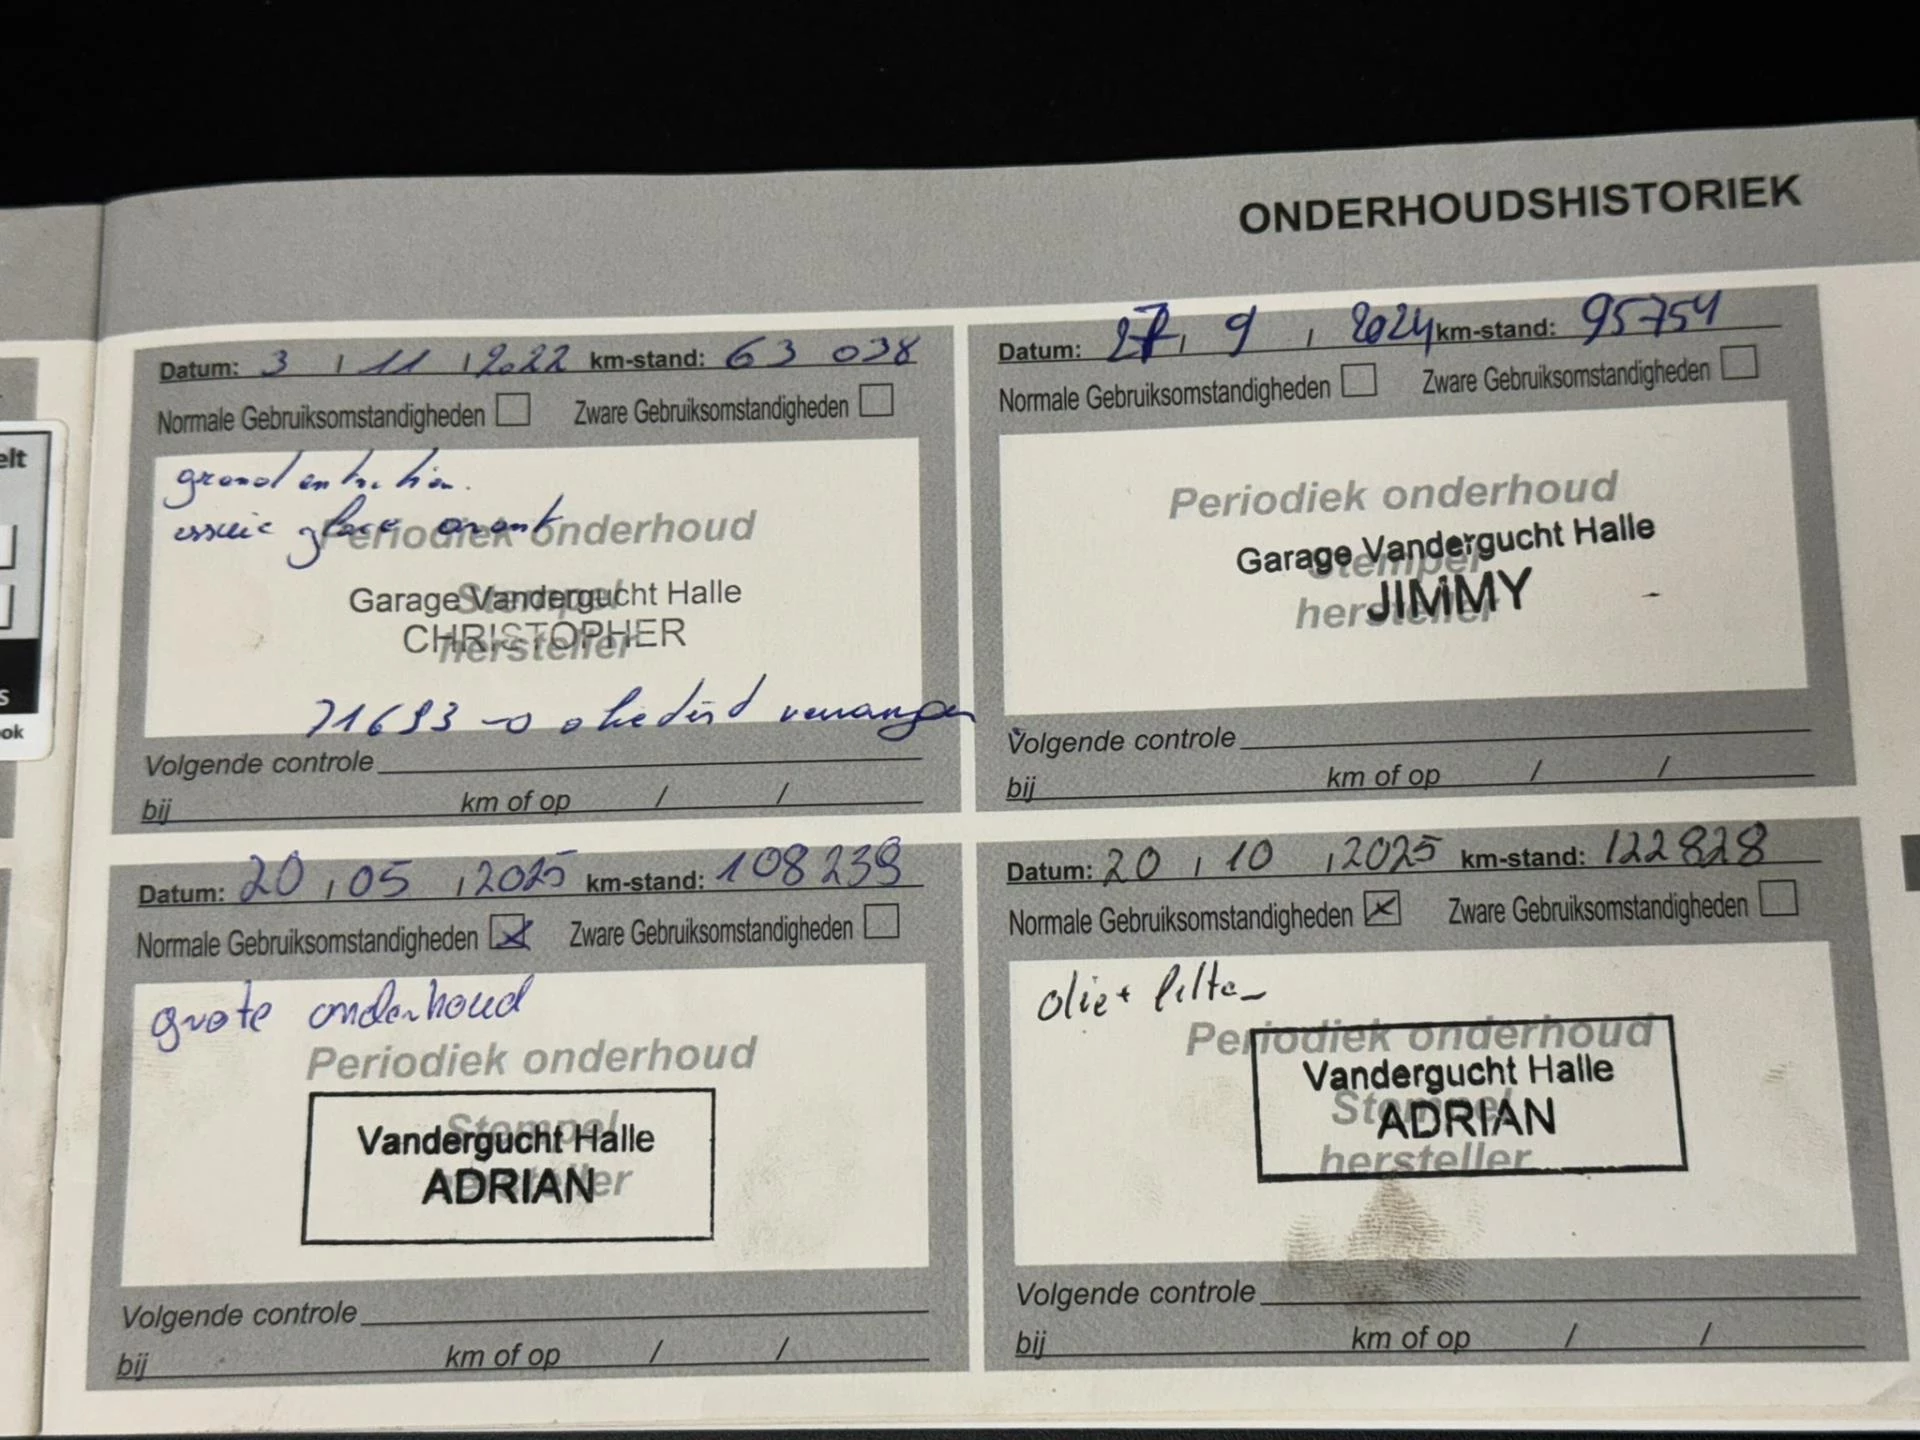 ONDERHOUDSHISTORIEK
Datum: 3 / 11 / 2022 km-stand: 63 038
Normale Gebruiksomstandigheden Zware Gebruiksomstandigheden
grand entretien.
essuie glace avant
Periodiek onderhoud
Stempel
Garage Vandergucht Halle
CHRISTOPHER
hersteller
71693 → oliefilter vervangen
Volgende controle
bij km of op / /
Datum: 27 / 9 / 2024 km-stand: 95754
Normale Gebruiksomstandigheden Zware Gebruiksomstandigheden
Periodiek onderhoud
Garage Vandergucht Halle
Stempel
JIMMY
hersteller
Volgende controle
bij km of op / /
Datum: 20 / 05 / 2025 km-stand: 108239
Normale Gebruiksomstandigheden x Zware Gebruiksomstandigheden
grote onderhoud
Periodiek onderhoud
Stempel
Vandergucht Halle
ADRIAN
hersteller
Volgende controle
bij km of op / /
Datum: 20 / 10 / 2025 km-stand: 122828
Normale Gebruiksomstandigheden x Zware Gebruiksomstandigheden
olie + filter
Periodiek onderhoud
Vandergucht Halle
Stempel
ADRIAN
hersteller
Volgende controle
bij km of op / /
elt
s
ok